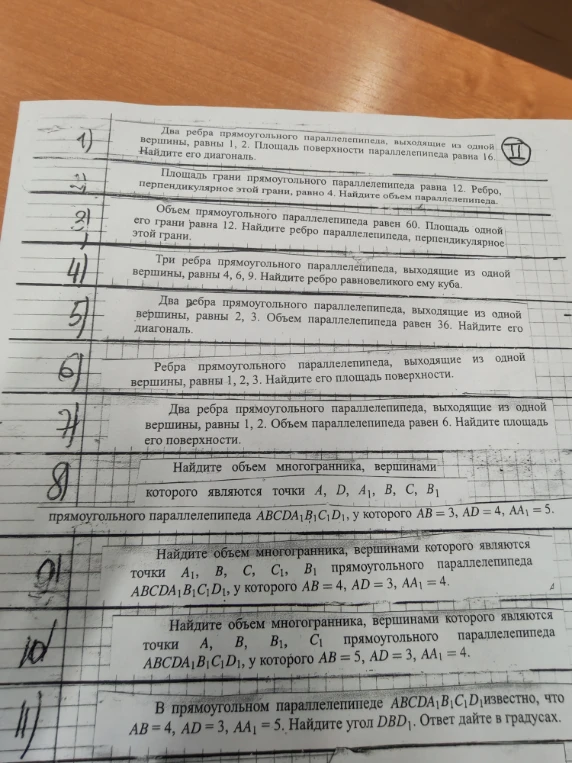 1) Два ребра прямоугольного параллелепипеда, выходящие из одной
вершины, равны 1, 2. Площадь поверхности параллелепипеда равна 16.
Найдите его диагональ.
II
2) Площадь грани прямоугольного параллелепипеда равна 12. Ребро,
перпендикулярное этой грани, равно 4. Найдите объем параллелепипеда.
3) Объем прямоугольного параллелепипеда равен 60. Площадь одной
его грани равна 12. Найдите ребро параллелепипеда, перпендикулярное
этой грани.
4) Три ребра прямоугольного параллелепипеда, выходящие из одной
вершины, равны 4, 6, 9. Найдите ребро равновеликого ему куба.
5) Два ребра прямоугольного параллелепипеда, выходящие из одной
вершины, равны 2, 3. Объем параллелепипеда равен 36. Найдите его
диагональ.
6) Ребра прямоугольного параллелепипеда, выходящие из одной
вершины, равны 1, 2, 3. Найдите его площадь поверхности.
7) Два ребра прямоугольного параллелепипеда, выходящие из одной
вершины, равны 1, 2. Объем параллелепипеда равен 6. Найдите площадь
его поверхности.
8) Найдите объем многогранника, вершинами
которого являются точки A, D, A₁, B, C, B₁
прямоугольного параллелепипеда ABCDA₁B₁C₁D₁, у которого AB = 3, AD = 4, AA₁ = 5.
9) Найдите объем многогранника, вершинами которого являются
точки A₁, B, C, C₁, B₁ прямоугольного параллелепипеда
ABCDA₁B₁C₁D₁, у которого AB = 4, AD = 3, AA₁ = 4.
10) Найдите объем многогранника, вершинами которого являются
точки A, B, B₁, C₁ прямоугольного параллелепипеда
ABCDA₁B₁C₁D₁, у которого AB = 5, AD = 3, AA₁ = 4.
11) В прямоугольном параллелепипеде ABCDA₁B₁C₁D₁известно, что
AB = 4, AD = 3, AA₁ = 5. Найдите угол DBD₁. Ответ дайте в градусах.